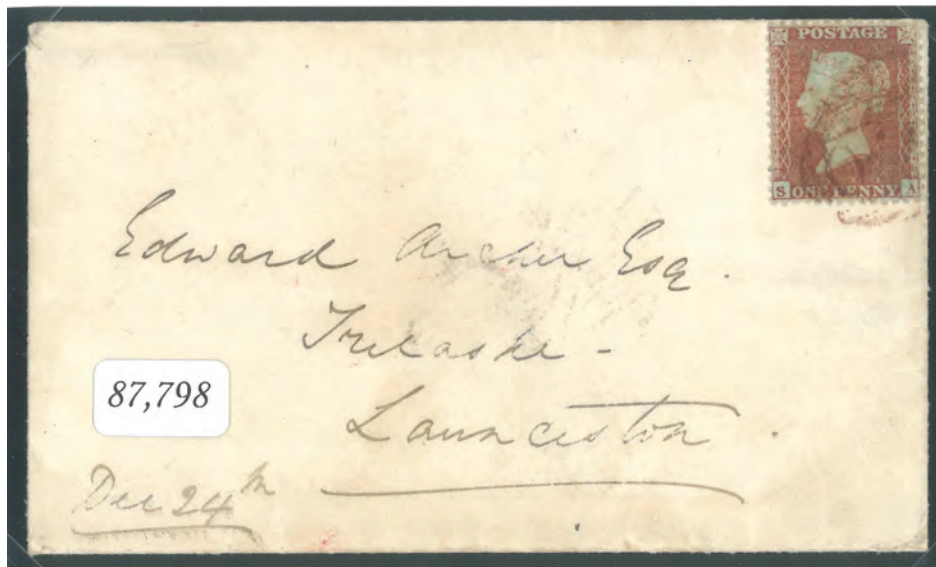 POSTAGE
S ONE PENNY A
Edward Archer Esq.
Trelaske -
Launceston.
87,798
Dec 24th